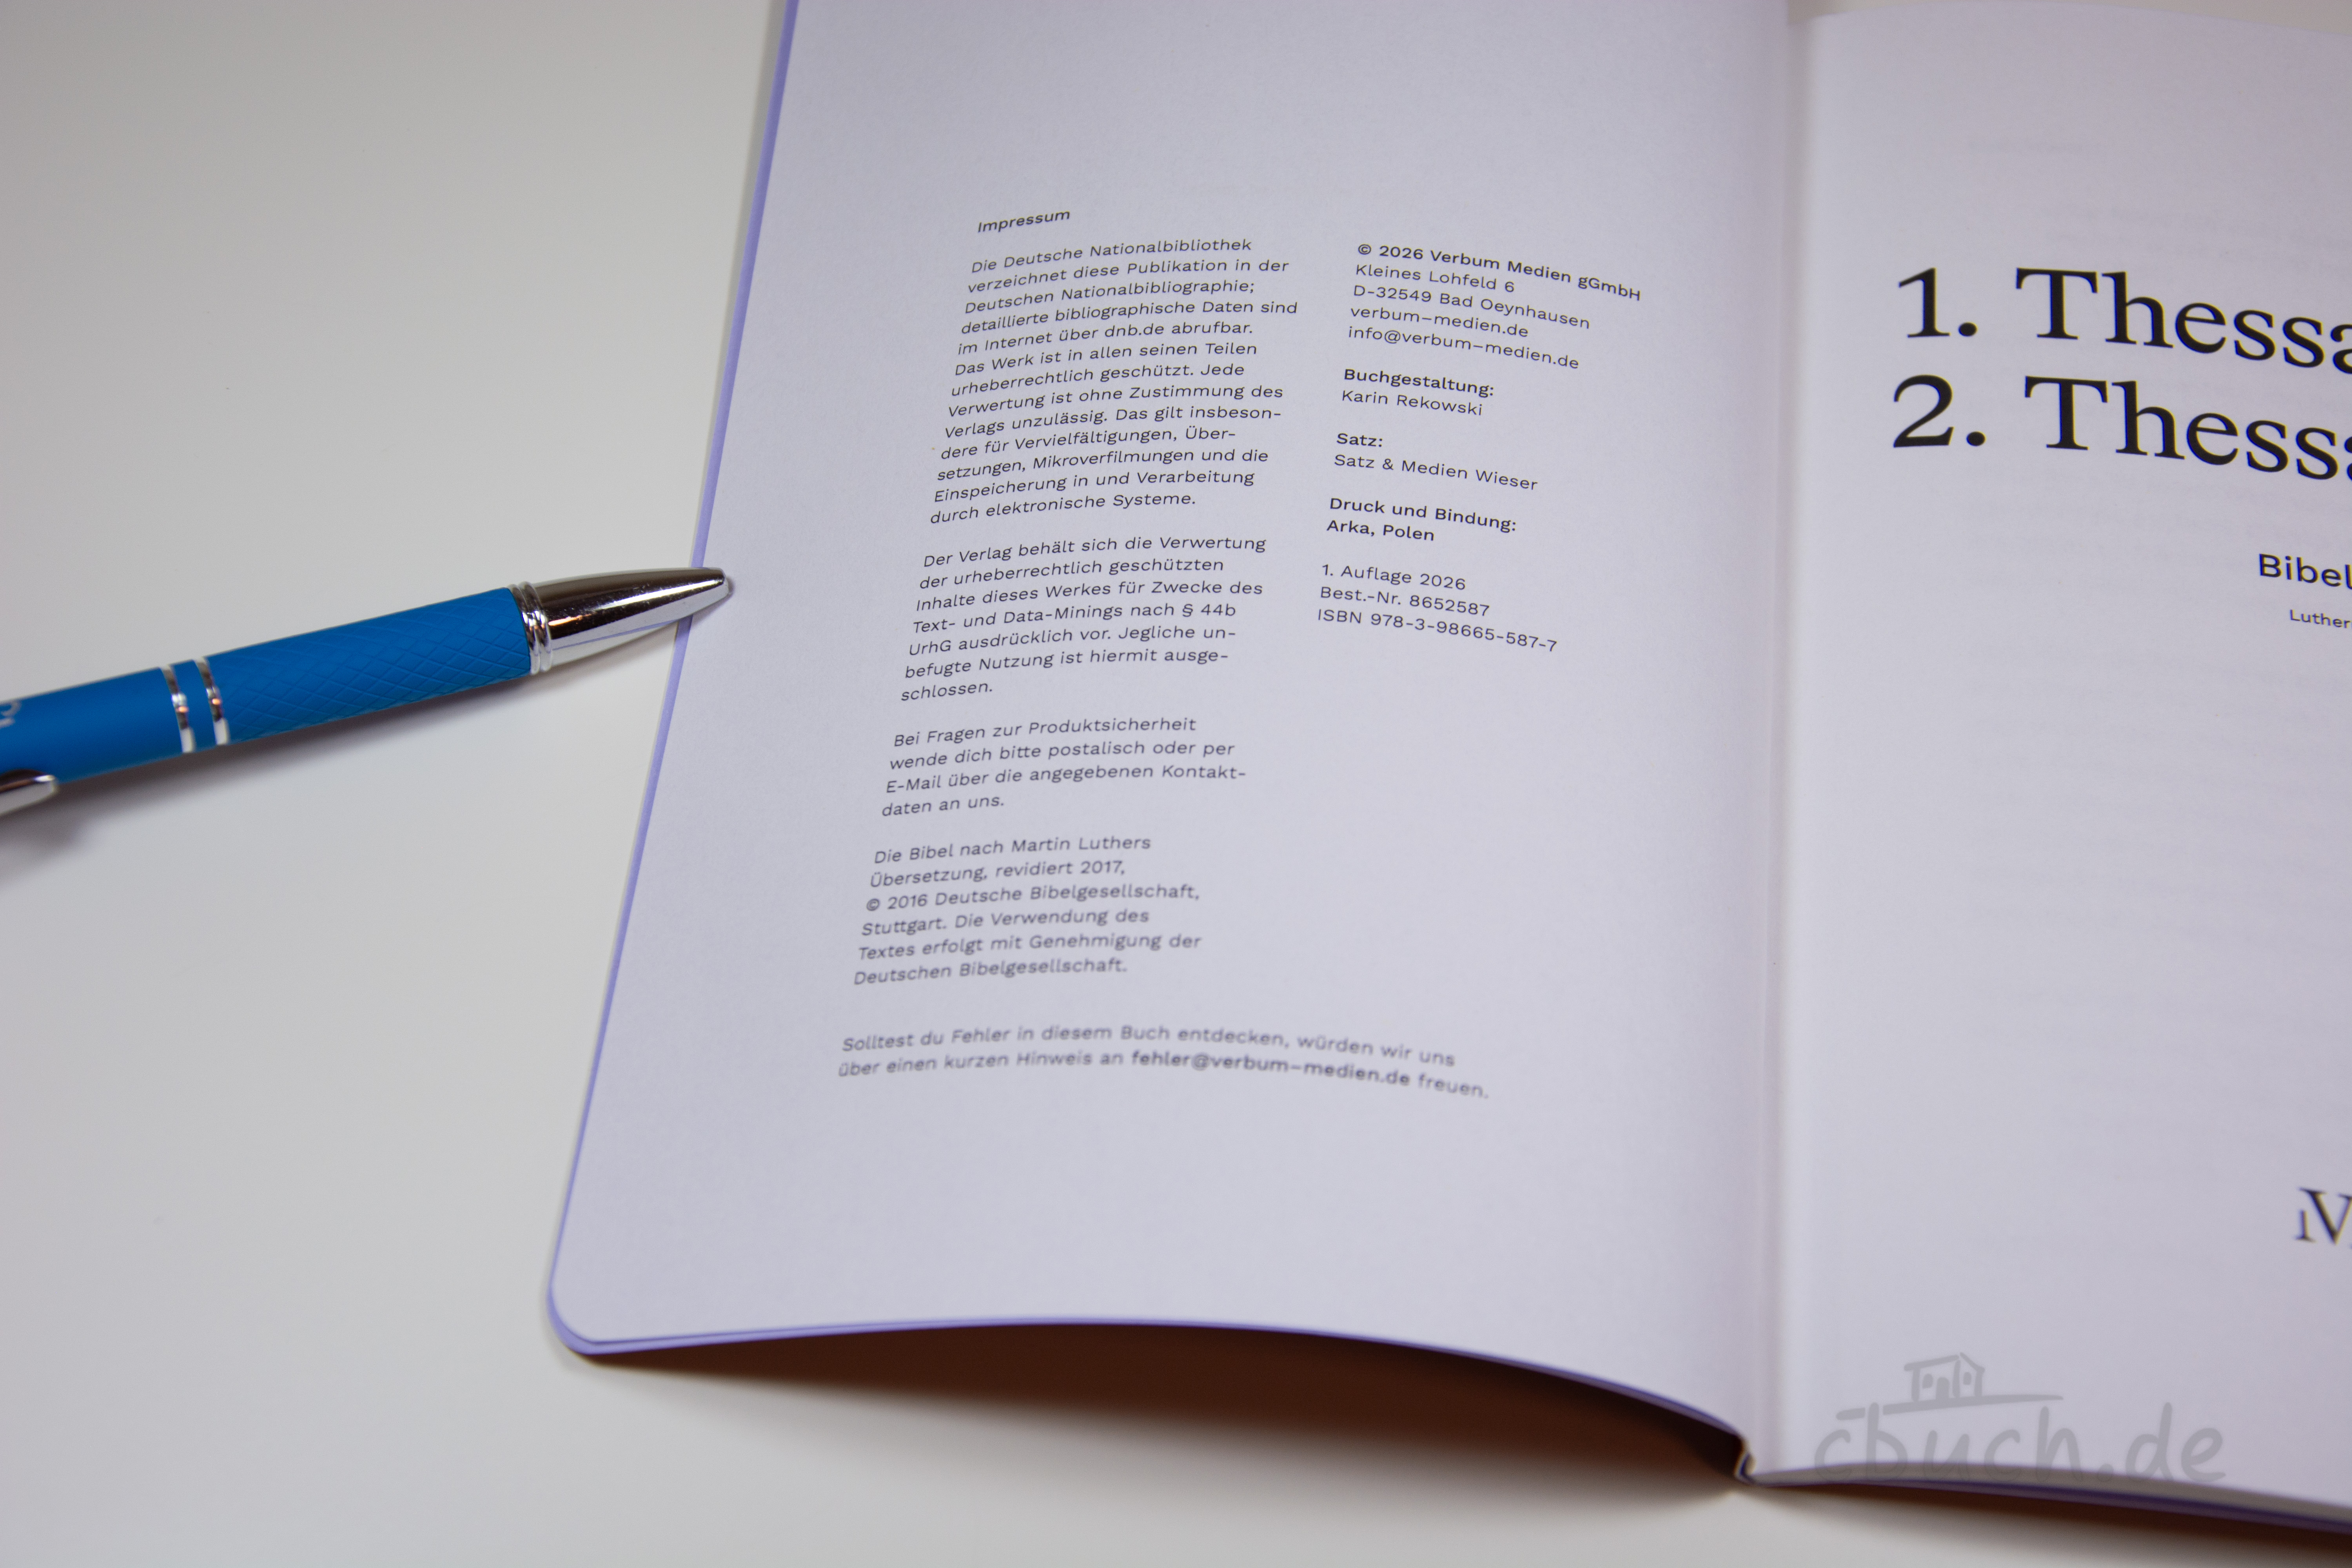 Impressum
Die Deutsche Nationalbibliothek
verzeichnet diese Publikation in der
Deutschen Nationalbibliographie;
detaillierte bibliographische Daten sind
im Internet über dnb.de abrufbar.
Das Werk ist in allen seinen Teilen
urheberrechtlich geschützt. Jede
Verwertung ist ohne Zustimmung des
Verlags unzulässig. Das gilt insbeson-
dere für Vervielfältigungen, Über-
setzungen, Mikroverfilmungen und die
Einspeicherung in und Verarbeitung
durch elektronische Systeme.
Der Verlag behält sich die Verwertung
der urheberrechtlich geschützten
Inhalte dieses Werkes für Zwecke des
Text- und Data-Minings nach § 44b
UrhG ausdrücklich vor. Jegliche un-
befugte Nutzung ist hiermit ausge-
schlossen.
Bei Fragen zur Produktsicherheit
wende dich bitte postalisch oder per
E-Mail über die angegebenen Kontakt-
daten an uns.
Die Bibel nach Martin Luthers
Übersetzung, revidiert 2017,
© 2016 Deutsche Bibelgesellschaft,
Stuttgart. Die Verwendung des
Textes erfolgt mit Genehmigung der
Deutschen Bibelgesellschaft.
© 2026 Verbum Medien gGmbH
Kleines Lohfeld 6
D-32549 Bad Oeynhausen
verbum-medien.de
info@verbum-medien.de
Buchgestaltung:
Karin Rekowski
Satz:
Satz & Medien Wieser
Druck und Bindung:
Arka, Polen
1. Auflage 2026
Best.-Nr. 8652587
ISBN 978-3-98665-587-7
Solltest du Fehler in diesem Buch entdecken, würden wir uns
über einen kurzen Hinweis an fehler@verbum-medien.de freuen.
1. Thessa
2. Thessa
Bibel
Luther
cbuch.de